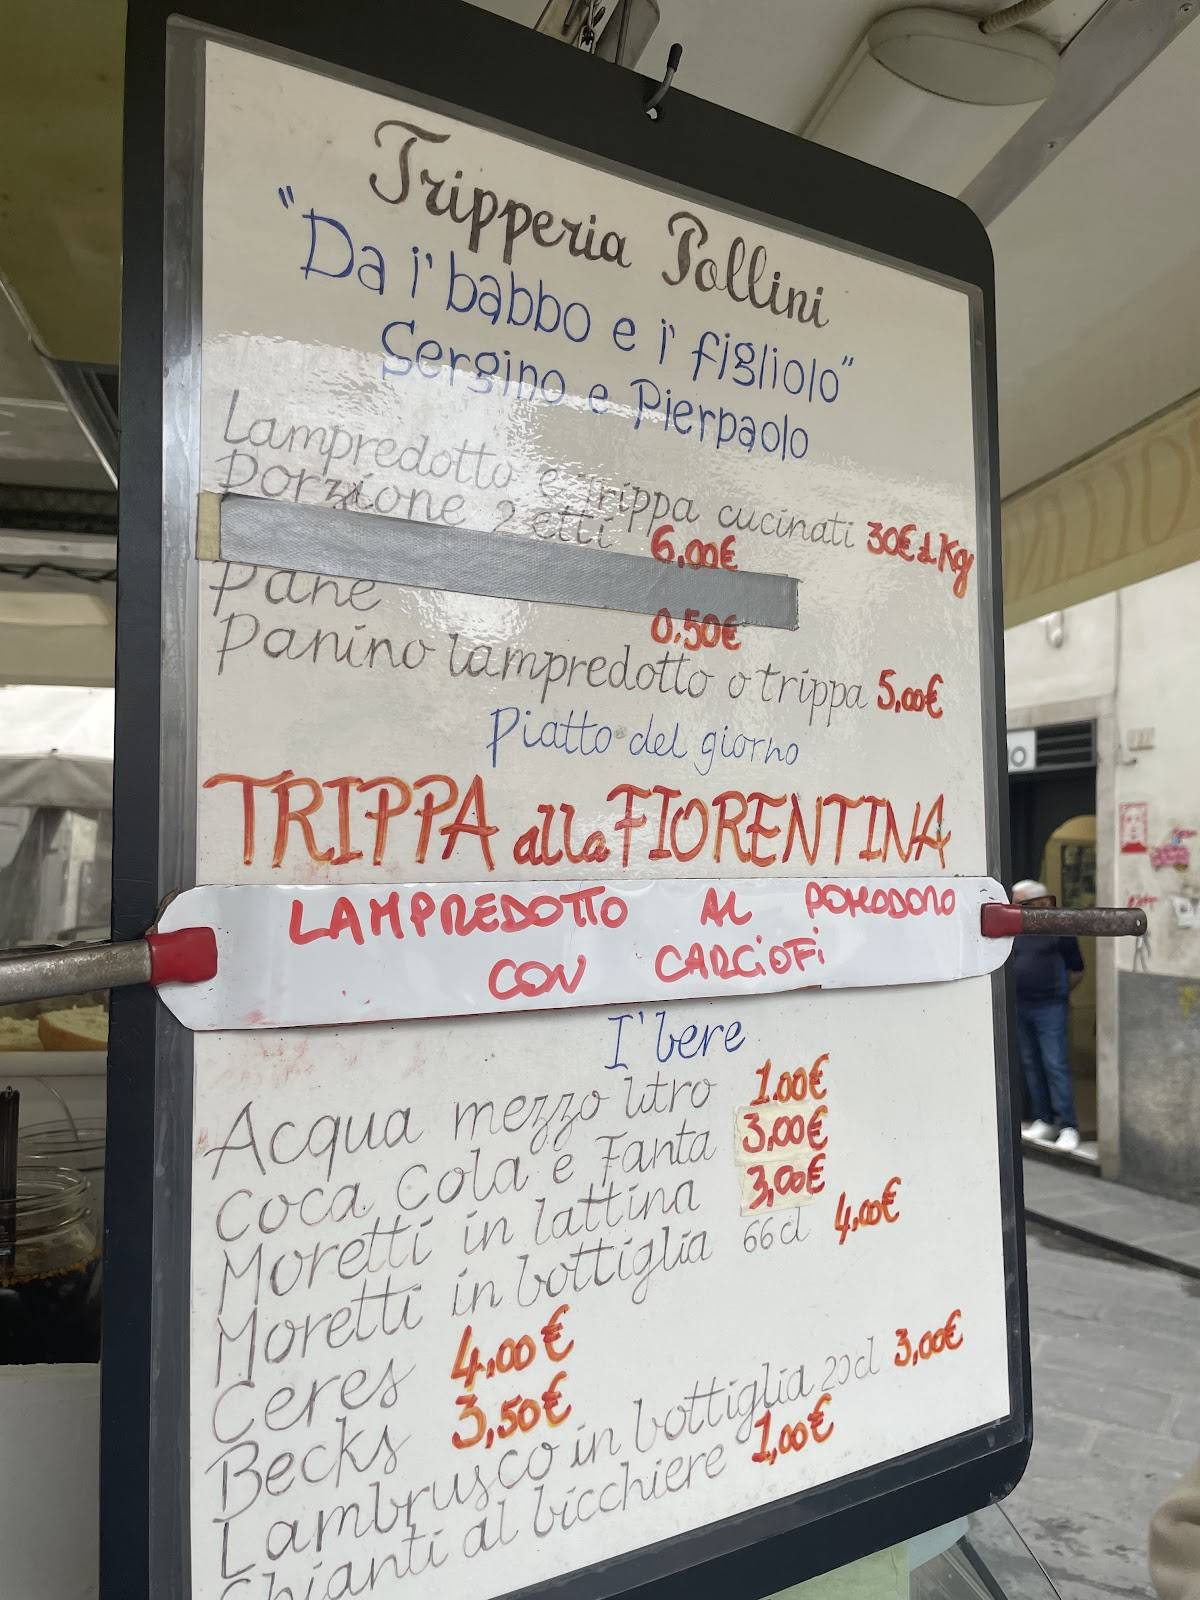 Tripperia Pollini
"Da i' babbo e i' figliolo"
Sergino e Pierpaolo
Lampredotto e trippa cucinati 30€ 1Kg
Porzione 2 etti 6,00€
Pane 0.50€
Panino lampredotto o trippa 5,00€
Piatto del giorno
TRIPPA alla FIORENTINA
LAMPREDOTTO AL POMODORO
CON CARCiOFi
I' bere
Acqua mezzo litro 1.00€
Coca Cola e Fanta 3,00€
Moretti in lattina 3,00€
Moretti in bottiglia 66 cl 4,00€
Ceres 4,00€
Becks 3,50€
Lambrusco in bottiglia 20cl 3,00€
Chianti al bicchiere 1,00€